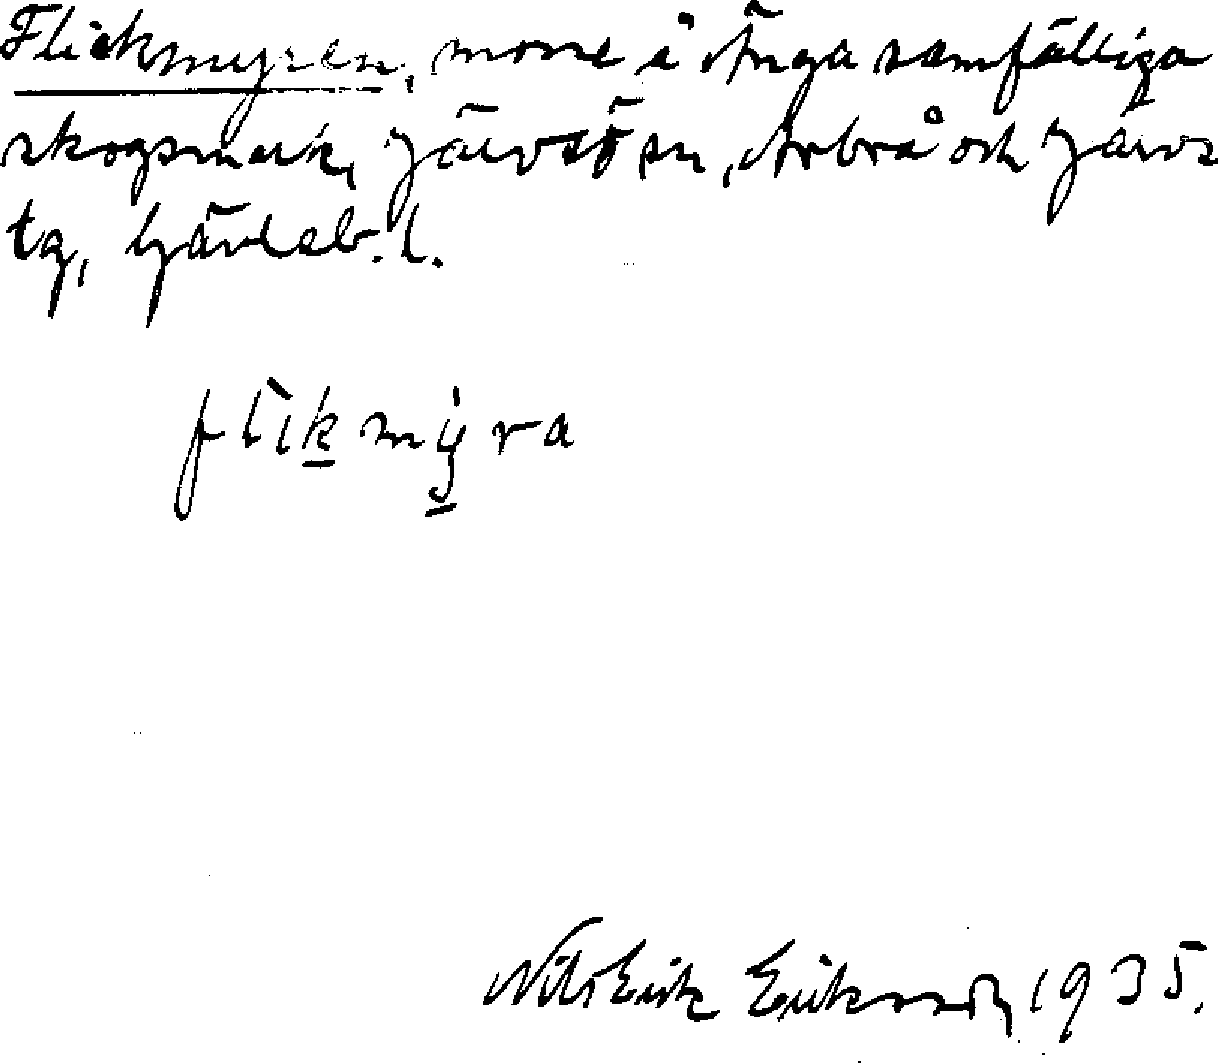 Flickmyren, mosse i Änga samfälliga
skogsmark, Järvsö sn, Arbrå och Järvs
tg, Gävleb. l.
flikmyra
Nils Erik Eriksson 1935.